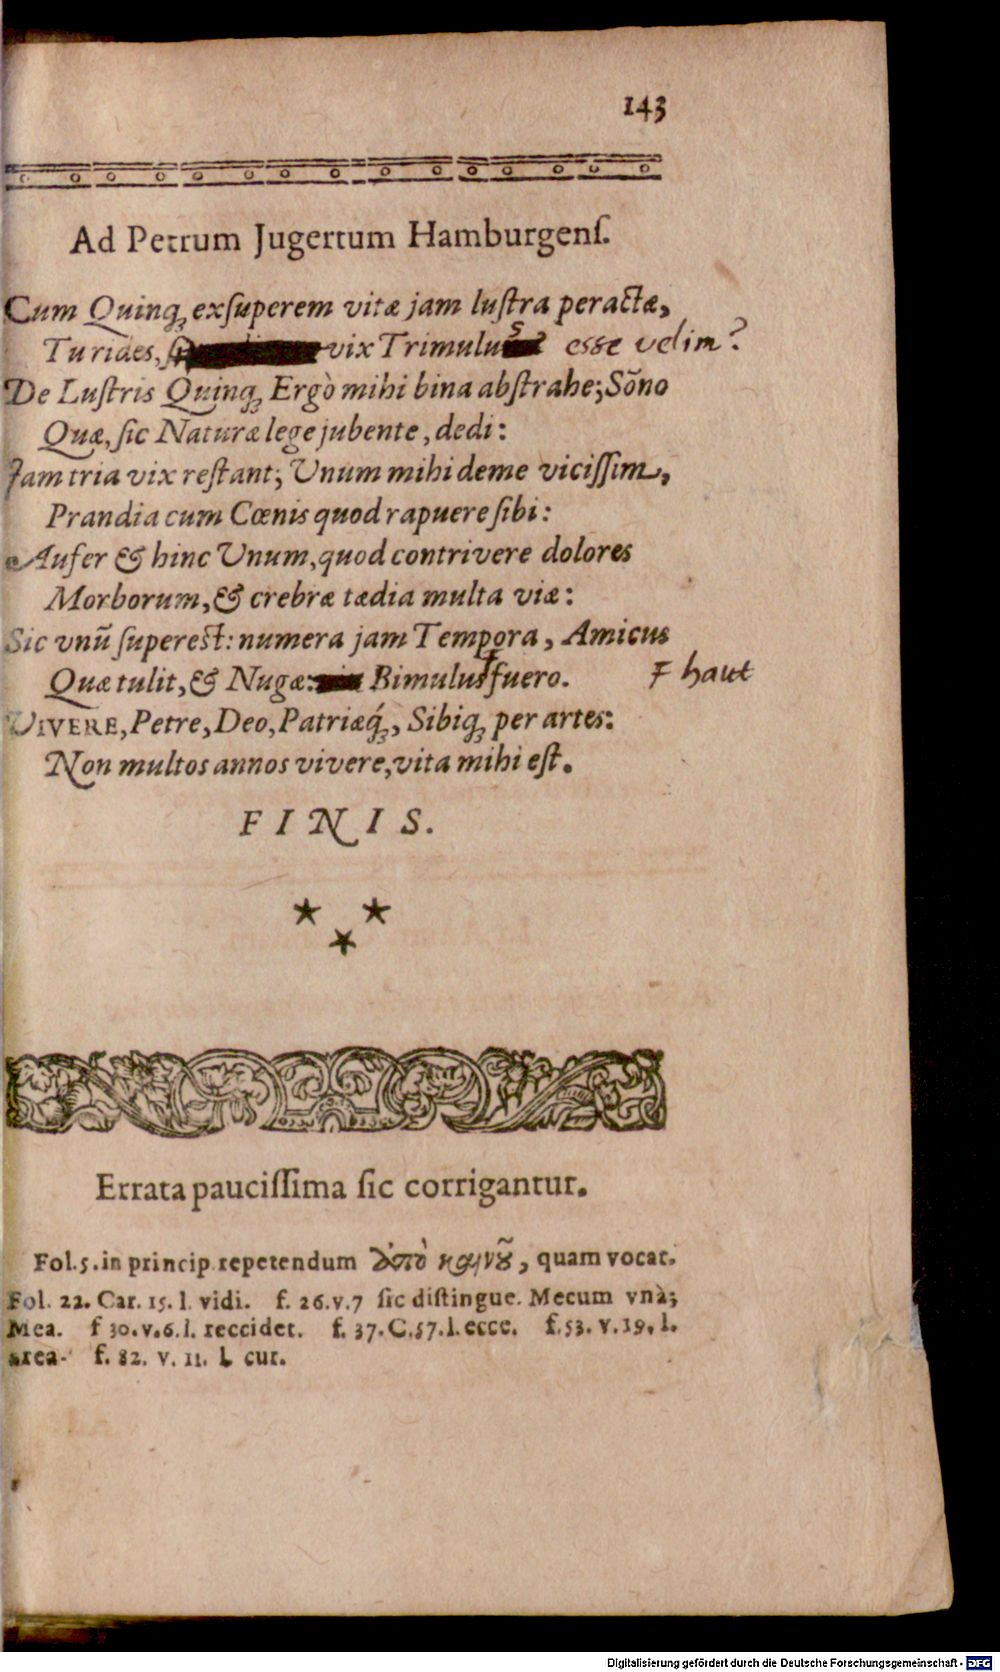 143
Ad Petrum Jugertum Hamburgenſ.
Cum Quinq; exſuperem vitæ jam luſtra peractæ,
Tu rides, vix Trimulus esse velim?
De Luſtris Quinq; Ergò mihi bina abſtrahe; Sõno
Quæ, ſic Naturæ lege jubente, dedi:
Jam tria vix reſtant; Unum mihi deme viciſſim,
Prandia cum Cœnis quod rapuere ſibi:
Aufer & hinc Unum, quod contrivere dolores
Morborum, & crebræ tædia multa viæ:
Sic vnũ ſupereſt: numera jam Tempora, Amicus
Quæ tulit, & Nugæ: Bimulus Ƒ fuero. Ƒ haut
VIVERE, Petre, Deo, Patriæq́;, Sibiq; per artes:
Non multos annos vivere, vita mihi eſt.
FINIS.
Errata pauciſſima ſic corrigantur.
Fol. 5. in princip. repetendum ἀπὸ , quam vocat.
Fol. 22. Car. 15. l. vidi. f. 26. v. 7 ſic diſtingue. Mecum vnà;
Mea. f 30. v. 6. l. reccidet. f. 37. C. 57. l. ecce. f. 53. v. 19. l.
area. f. 82. v. 11. l. cur.
Digitalisierung gefördert durch die Deutsche Forschungsgemeinschaft - DFG